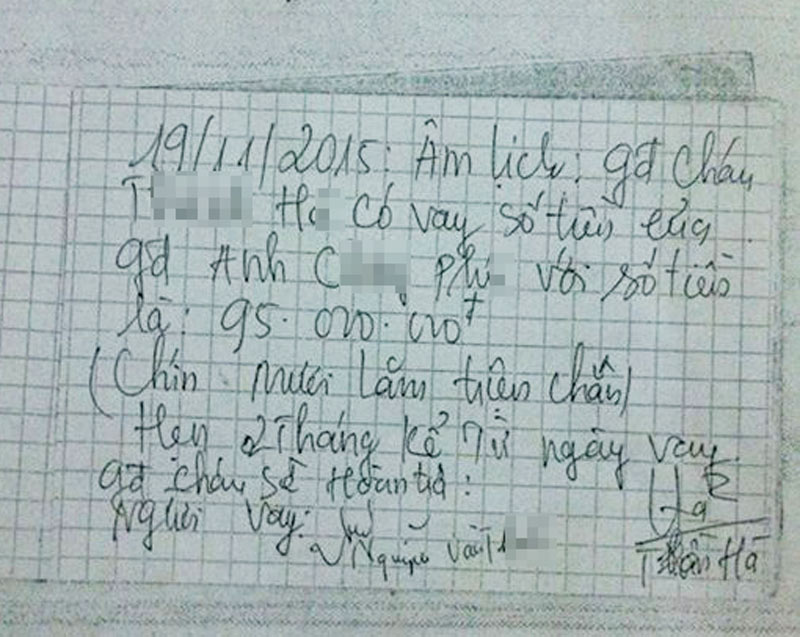 19/11/2015: Âm lịch: gđ cháu
Hà có vay số tiền của
gđ Anh C Phú với số tiền
là: 95.000.000đ
(Chín mươi lăm triệu chẵn)
Hẹn 2 Tháng kể Từ ngày vay
gđ cháu sẽ Hoàn trả:
Người vay:
Nguyễn Văn T
Hà
Trần Hà